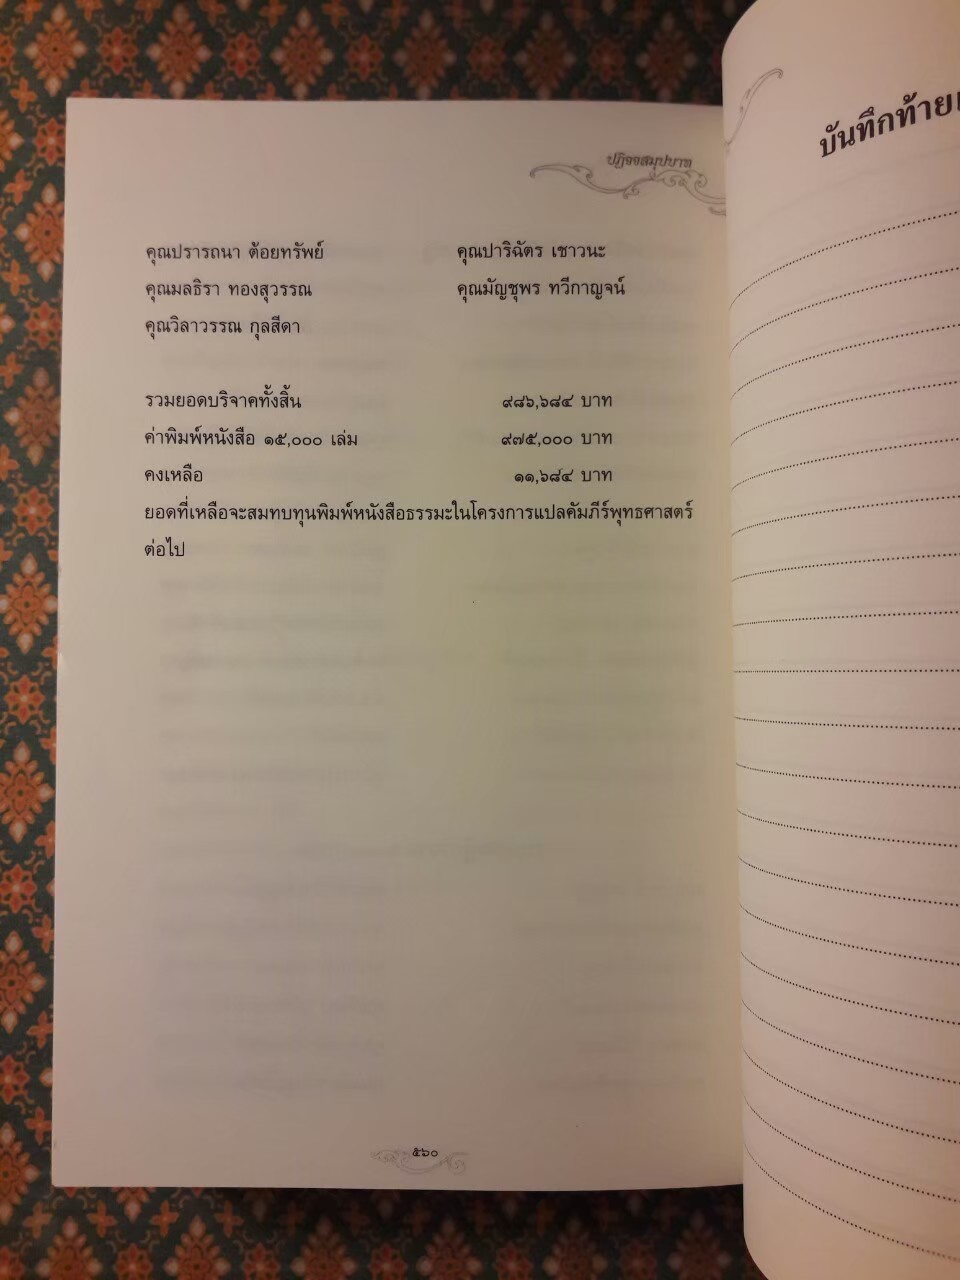 ปฏิจจสมุปบาท
คุณปรารถนา ต้อยทรัพย์ คุณปาริฉัตร เชาวนะ
คุณมลธิรา ทองสุวรรณ คุณมัญชุพร ทวีกาญจน์
คุณวิลาวรรณ กุลสีดา
รวมยอดบริจาคทั้งสิ้น ๙๘๖,๖๘๔ บาท
ค่าพิมพ์หนังสือ ๑๕,๐๐๐ เล่ม ๙๗๕,๐๐๐ บาท
คงเหลือ ๑๑,๖๘๔ บาท
ยอดที่เหลือจะสมทบทุนพิมพ์หนังสือธรรมะในโครงการแปลคัมภีร์พุทธศาสตร์
ต่อไป
๕๖๐
บันทึกท้าย